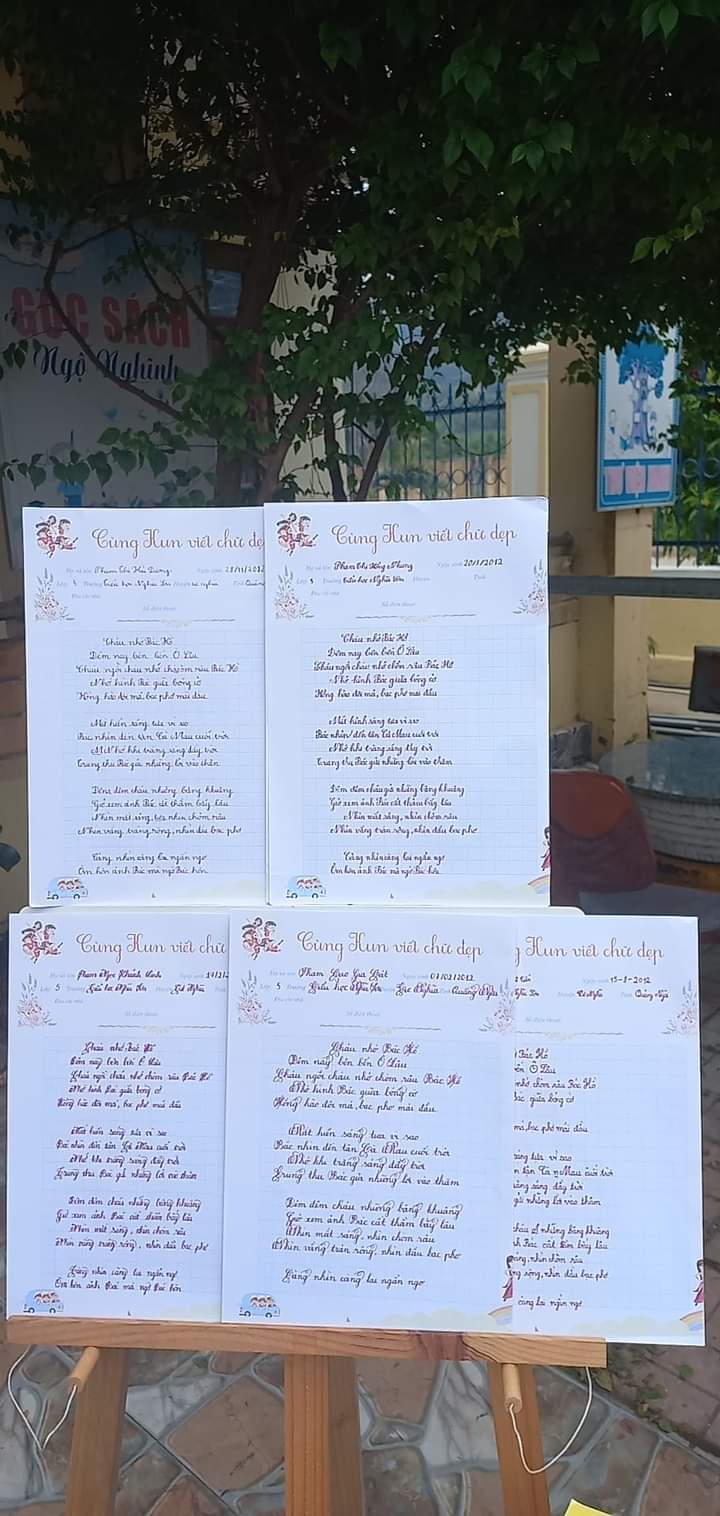 GÓC SÁCH
Ngộ Nghĩnh
Cùng Hun viết chữ đẹp
Họ và tên: Phạm Thị Hải Dương. Ngày sinh: 28/11/2012
Lớp: 5 Trường: Tiểu học Nghĩa Huyện: Tỉnh: Quảng
Địa chỉ nhà:
Số điện thoại:
Cháu nhớ Bác Hồ
Đêm nay bên bến Ô Lâu
Cháu ngồi cháu nhớ chòm râu Bác Hồ
Nhớ hình Bác giữa bóng cờ
Hồng hào đôi má, bạc phơ mái đầu.
Mắt hiền sáng tựa vì sao
Bác nhìn đến tận Cà Mau cuối trời
Nhớ khi trăng sáng đầy trời
Trung thu Bác gửi những lời vào thăm
Đêm đêm cháu những bâng khuâng
Giở xem ảnh Bác cất thầm bấy lâu
Nhìn mắt sáng, nhìn chòm râu
Nhìn vầng trăng rộng, nhìn đầu bạc phơ
Càng nhìn càng lại ngẩn ngơ
Ôm hôn ảnh Bác mà ngỡ Bác hôn
Cùng Hun viết chữ đẹp
Họ và tên: Phạm Thị Hồng Nhung Ngày sinh: 20/1/2012
Lớp: 5 Trường: tiểu học Nghĩa Huyện: Tỉnh:
Địa chỉ nhà:
Số điện thoại:
Cháu nhớ Bác Hồ
Đêm nay bên bến Ô Lâu
Cháu ngồi cháu nhớ chòm râu Bác Hồ
Nhớ hình Bác giữa bóng cờ
Hồng hào đôi má, bạc phơ mái đầu
Mắt hiền sáng tựa vì sao
Bác nhìn đến tận Cà Mau cuối trời
Nhớ khi trăng sáng đầy trời
Trung thu Bác gửi những lời vào thăm
Đêm đêm cháu những bâng khuâng
Giở xem ảnh Bác cất thầm bấy lâu
Nhìn mắt sáng, nhìn chòm râu
Nhìn vầng trán rộng, nhìn đầu bạc phơ
Càng nhìn càng lại ngẩn ngơ
Ôm hôn ảnh Bác mà ngỡ Bác hôn
Cùng Hun viết chữ
Họ và tên: Phạm Ngọc Khánh Ngày sinh:
Lớp: 5 Trường: Tiểu học Nghĩa Huyện: Tư Nghĩa
Địa chỉ nhà:
Số điện thoại:
Cháu nhớ Bác Hồ
Đêm nay bên bến Ô Lâu
Cháu ngồi cháu nhớ chòm râu Bác Hồ
Nhớ hình Bác giữa bóng cờ
Hồng hào đôi má, bạc phơ mái đầu
Mắt hiền sáng tựa vì sao
Bác nhìn đến tận Cà Mau cuối trời
Nhớ khi trăng sáng đầy trời
Trung thu Bác gửi những lời vào thăm
Đêm đêm cháu những bâng khuâng
Giở xem ảnh Bác cất thầm bấy lâu
Nhìn mắt sáng, nhìn chòm râu
Nhìn vầng trán rộng, nhìn đầu bạc phơ
Càng nhìn càng lại ngẩn ngơ
Ôm hôn ảnh Bác mà ngỡ Bác hôn
Cùng Hun viết chữ đẹp
Họ và tên: Phạm Gia Ngày sinh: 07/02/2012
Lớp: 5 Trường: Tiểu học Nghĩa Tư Nghĩa Tỉnh: Quảng Ngãi
Địa chỉ nhà:
Số điện thoại:
Cháu nhớ Bác Hồ
Đêm nay bên bến Ô Lâu
Cháu ngồi cháu nhớ chòm râu Bác Hồ
Nhớ hình Bác giữa bóng cờ
Hồng hào đôi má, bạc phơ mái đầu.
Mắt hiền sáng tựa vì sao
Bác nhìn đến tận Cà Mau cuối trời
Nhớ khi trăng sáng đầy trời
Trung thu Bác gửi những lời vào thăm
Đêm đêm cháu những bâng khuâng
Giở xem ảnh Bác cất thầm bấy lâu
Nhìn mắt sáng, nhìn chòm râu
Nhìn vầng trán rộng, nhìn đầu bạc phơ
Càng nhìn càng lại ngẩn ngơ
Hun viết chữ đẹp
Ngày sinh: 15-8-2012
Huyện: Tư Nghĩa Tỉnh: Quảng Ngãi
Số điện thoại:
Bác Hồ
Ô Lâu
nhớ chòm râu Bác Hồ
Bác giữa bóng cờ
má, bạc phơ mái đầu
sáng tựa vì sao
tận Cà Mau cuối trời
sáng đầy trời
gửi những lời vào thăm
cháu những bâng khuâng
Bác cất thầm bấy lâu
sáng, nhìn chòm râu
rộng, nhìn đầu bạc phơ
càng lại ngẩn ngơ